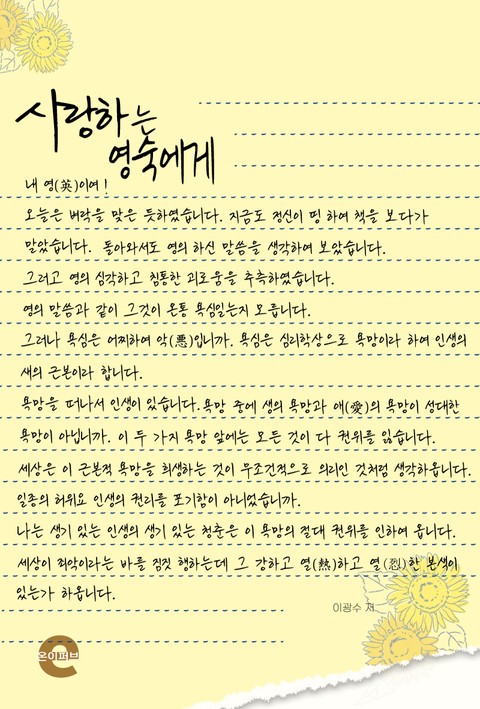 사랑하는
영숙에게
내 영(英)이여!
오늘은 벼락을 맞은 듯하였습니다. 지금도 정신이 띵 하여 책을 보다가
말았습니다. 돌아와서도 영의 하신 말씀을 생각하여 보았습니다.
그러고 영의 심각하고 침통한 괴로움을 추측하였습니다.
영의 말씀과 같이 그것이 온통 욕심일는지 모릅니다.
그러나 욕심은 어찌하여 악(悪)입니까. 욕심은 심리학상으로 욕망이라 하여 인생의
새의 근본이라 합니다.
욕망을 떠나서 인생이 있습니다. 욕망 중에 생의 욕망과 애(愛)의 욕망이 성대한
욕망이 아닙니까. 이 두 가지 욕망 앞에는 모든 것이 다 권위를 잃습니다.
세상은 이 근본적 욕망을 희생하는 것이 무조건적으로 의리인 것처럼 생각하옵니다.
일종의 허위요 인생의 권리를 포기함이 아니었습니까.
나는 생기 있는 인생의 생기 있는 청춘은 이 욕망의 절대 권위를 인하여 옵니다.
세상이 죄악이라는 바를 짐짓 행하는데 그 강하고 열(熱)하고 열(烈)한 본색이
있는가 하옵니다.
이광수 저
온이퍼브